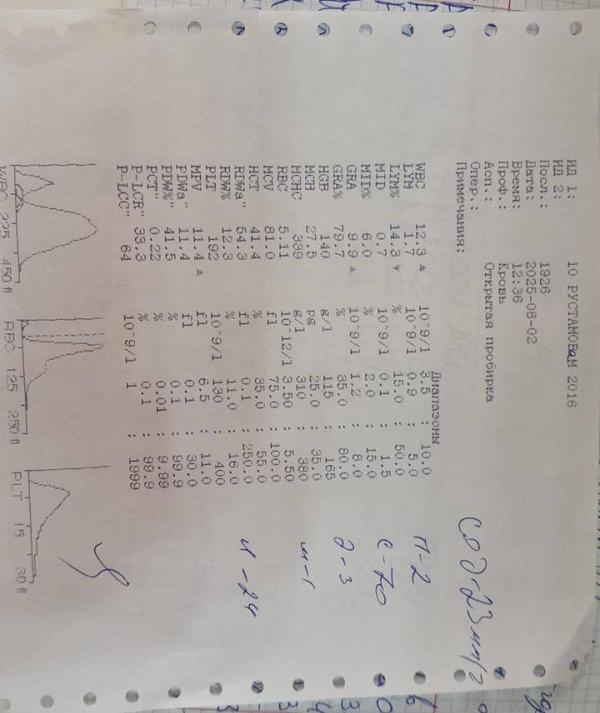 ИД 1: 10 РУСТАМОВаМ 2016
ИД 2:
Посл.: 1926
Дата: 2025-08-02
Время: 12:36
Проф.: Кровь
Асп.: Открытая пробирка
Опер.:
Примечания:
СОЭ-23мм/г
Диапазоны
WBC 12.3 ▲ 10^9/l 3.5 : 10.0
LYM 1.7 10^9/l 0.9 : 5.0
LYM% 14.3 ▼ % 15.0 : 50.0
MID 0.7 10^9/l 0.1 : 1.5
MID% 6.0 % 2.0 : 15.0
GRA 9.9 ▲ 10^9/l 1.2 : 8.0
GRA% 79.7 % 35.0 : 80.0
HGB 140 g/l 115 : 165
MCH 27.5 pg 25.0 : 35.0
MCHC 339 g/l 310 : 380
RBC 5.11 10^12/l 3.50 : 5.50
MCV 81.0 fl 75.0 : 100.0
HCT 41.4 % 35.0 : 55.0
RDWa" 54.3 fl 0.1 : 250.0
RDW% 12.3 % 11.0 : 16.0
PLT 192 10^9/l 130 : 400
MPV 11.4 ▲ fl 6.5 : 11.0
PDWa" 11.4 fl 0.1 : 30.0
PDW%" 41.5 % 0.1 : 99.9
PCT" 0.22 % 0.01 : 9.99
P-LCR" 33.3 % 0.1 : 99.9
P-LCC" 64 10^9/l 1 : 1999
П-2
С-70
Э-3
м-1
л-24
WBC 225 450 fl
RBC 125 250 fl
PLT 15 30 fl